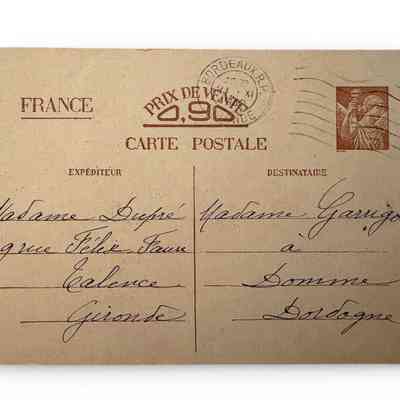 BORDEAUX R.P.
XI
FRANCE
PRIX DE VENTE
0,90
CARTE POSTALE
EXPÉDITEUR
DESTINATAIRE
Madame Dupré
rue Félix Faure
Talence
Gironde
Madame Garrigo
à
Domme
Dordogne